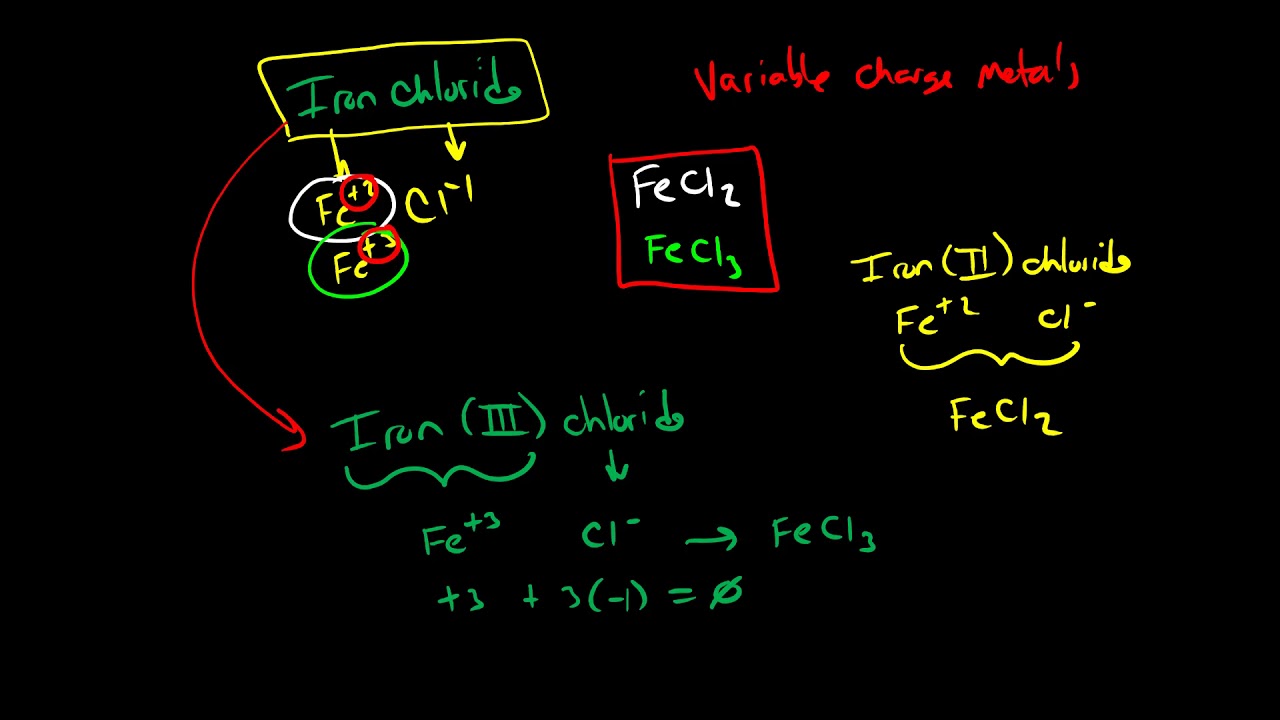 Iron chloride
Variable charge metals
Fe+2 Cl-1
Fe+3
FeCl2
FeCl3
Iron (II) chloride
Fe+2 Cl-
FeCl2
Iron (III) chloride
Fe+3 Cl- → FeCl3
+3 + 3(-1) = 0